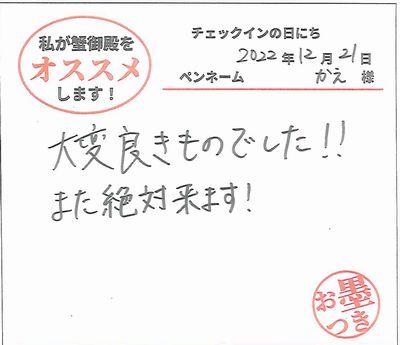 私が蟹御殿を
オススメ
します！
チェックインの日にち
2022年12月21日
ペンネーム かえ 様
大変良きものでした!!
また絶対来ます!
お墨つき